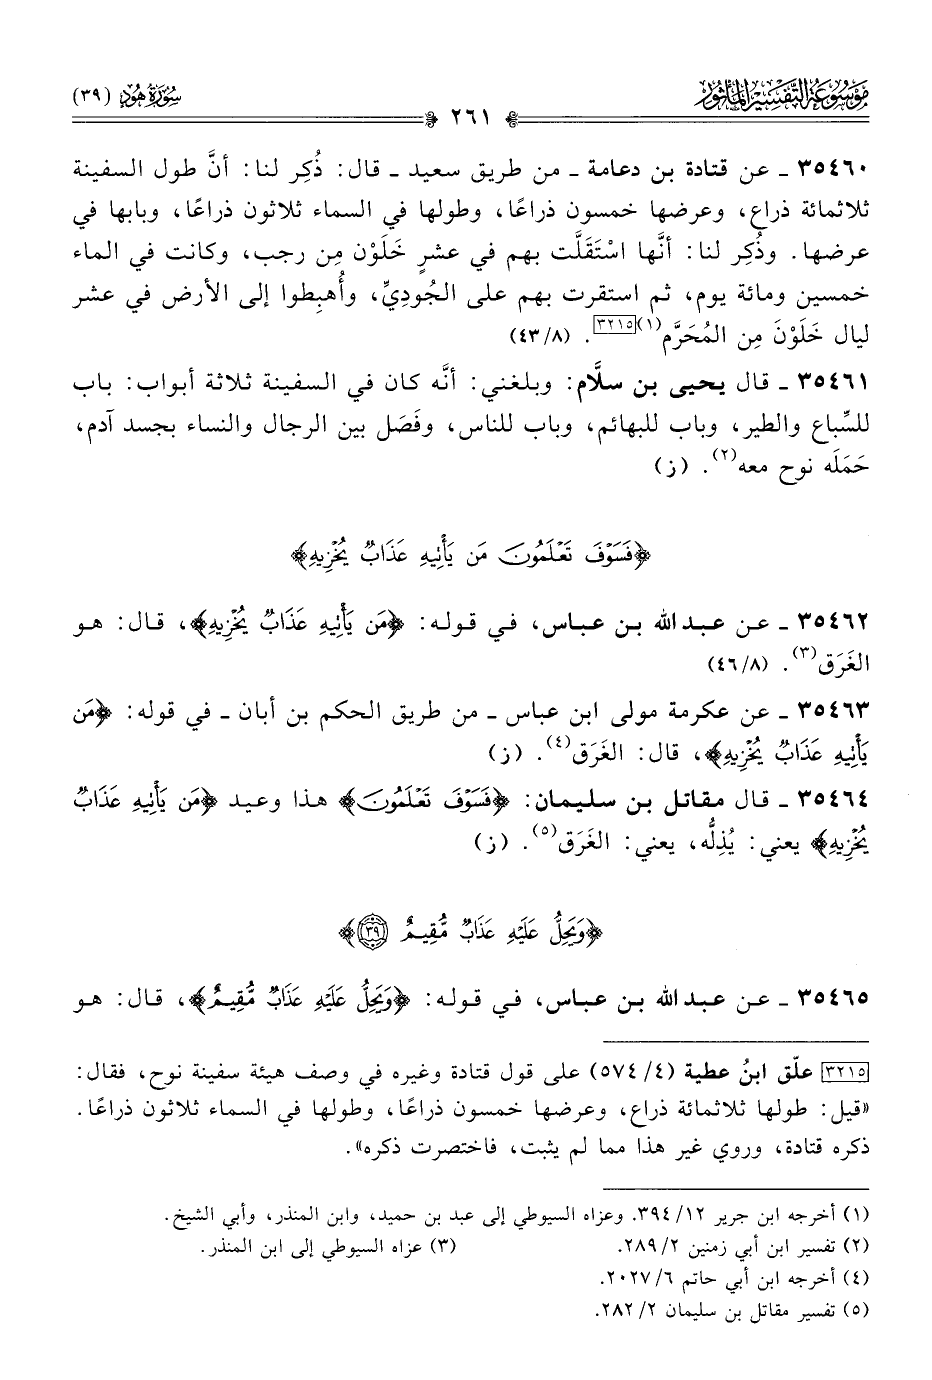 مَوْسُوعَة التَّفْسِير المَأْثُور
سُورَةُ هُودٍ (٣٩)
٢٦١
٣٥٤٦٠ ـ عن قتادة بن دعامة ـ من طريق سعيد ـ قال: ذُكِر لنا: أنَّ طول السفينة
ثلاثمائة ذراع، وعرضها خمسون ذراعًا، وطولها في السماء ثلاثون ذراعًا، وبابها في
عرضها. وذُكِر لنا: أنَّها اسْتَقَلَّت بهم في عشرٍ خَلَوْن مِن رجب، وكانت في الماء
خمسين ومائة يوم، ثم استقرت بهم على الجُودِيِّ، وأُهبِطوا إلى الأرض في عشر
ليال خَلَوْنَ مِن المُحَرَّم(١)[٣٢١٥]. (٤٣/٨)
٣٥٤٦١ ـ قال يحيى بن سلَّام: وبلغني: أنَّه كان في السفينة ثلاثة أبواب: باب
للسِّباع والطير، وباب للبهائم، وباب للناس، وفَصَل بين الرجال والنساء بجسد آدم،
حَمَلَه نوح معه(٢). (ز)
﴿فَسَوْفَ تَعْلَمُونَ مَن يَأْتِيهِ عَذَابٌ يُخْزِيهِ﴾
٣٥٤٦٢ ـ عن عبد الله بن عباس، في قوله: ﴿مَن يَأْتِيهِ عَذَابٌ يُخْزِيهِ﴾، قال: هو
الغَرَق(٣). (٤٦/٨)
٣٥٤٦٣ ـ عن عكرمة مولى ابن عباس ـ من طريق الحكم بن أبان ـ في قوله: ﴿مَن
يَأْتِيهِ عَذَابٌ يُخْزِيهِ﴾، قال: الغَرَق(٤). (ز)
٣٥٤٦٤ ـ قال مقاتل بن سليمان: ﴿فَسَوْفَ تَعْلَمُونَ﴾ هذا وعيد ﴿مَن يَأْتِيهِ عَذَابٌ
يُخْزِيهِ﴾ يعني: يُذِلُّه، يعني: الغَرَق(٥). (ز)
﴿وَيَحِلُّ عَلَيْهِ عَذَابٌ مُّقِيمٌ ٣٩﴾
٣٥٤٦٥ ـ عن عبد الله بن عباس، في قوله: ﴿وَيَحِلُّ عَلَيْهِ عَذَابٌ مُّقِيمٌ﴾، قال: هو
[٣٢١٥] علّق ابنُ عطية (٤/ ٥٧٤) على قول قتادة وغيره في وصف هيئة سفينة نوح، فقال:
«قيل: طولها ثلاثمائة ذراع، وعرضها خمسون ذراعًا، وطولها في السماء ثلاثون ذراعًا.
ذكره قتادة، وروي غير هذا مما لم يثبت، فاختصرت ذكره».
(١) أخرجه ابن جرير ١٢/ ٣٩٤. وعزاه السيوطي إلى عبد بن حميد، وابن المنذر، وأبي الشيخ.
(٢) تفسير ابن أبي زمنين ٢/ ٢٨٩.
(٣) عزاه السيوطي إلى ابن المنذر.
(٤) أخرجه ابن أبي حاتم ٦/ ٢٠٢٧.
(٥) تفسير مقاتل بن سليمان ٢/ ٢٨٢.